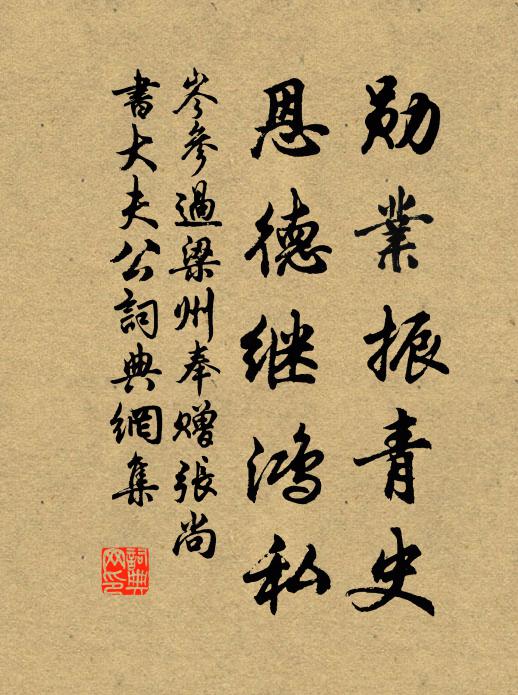 勋業振青史
恩德继鸿私
岑參過梁州奉贈張尚
書大夫公詞典網集